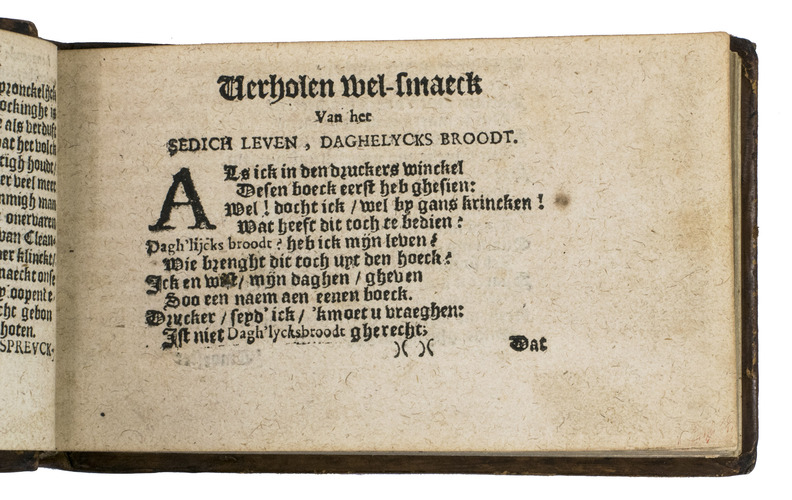 pronckelijck
ockinghe is
e als verdust
at het volck
tigh houdt/
er veel meer
nmigh man
onervaren
van Clean-
er klinckt/
maeckt onse
y oopent e
cht gebon
hoten.
SPREVCK-
Verholen wel-smaeck
Van het
SEDICH LEVEN, DAGHELYCKS BROODT.
ALs ick in den druckers winckel
Desen boeck eerst heb ghesien:
Wel! docht ick / wel by gans krincken!
Wat heeft dit toch te bedien?
Dagh'lijcks broodt? heb ick mijn leven?
Wie brenght dit toch uyt den hoeck?
Ick en wist/ mijn daghen / gheven
Soo een naem aen eenen boeck.
Drucker / seyd' ick / 'k moet u vraeghen:
Ist niet Dagh'lycksbroodt gherecht;
)( )( Dat